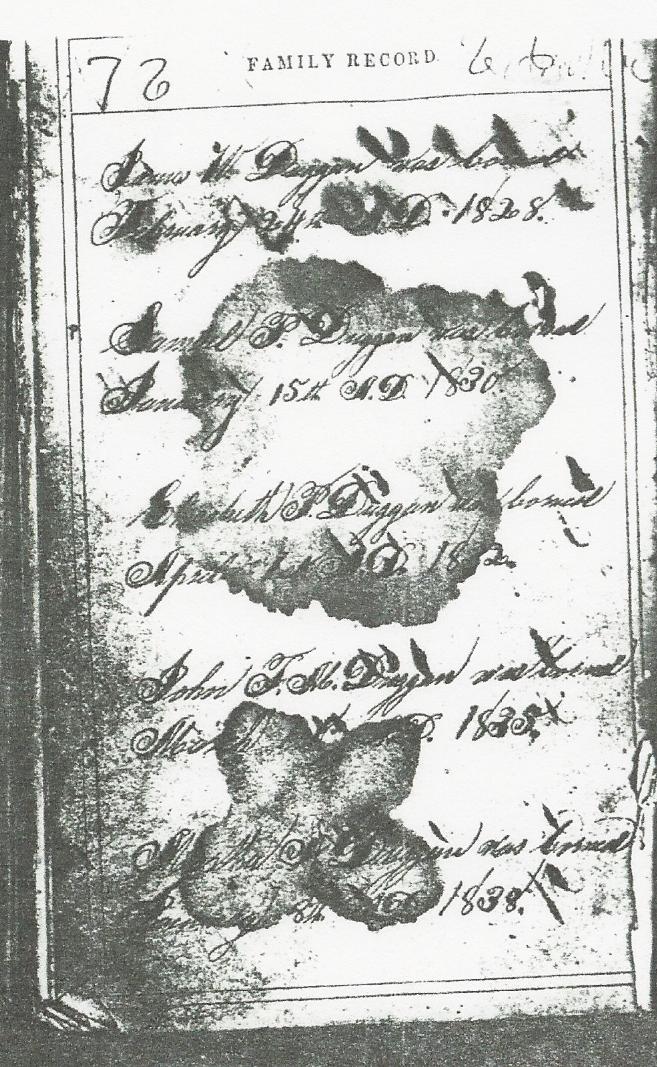 FAMILY RECORD
James W. Duggan was borned
February 24th A.D. 1828.
Samuel P. Duggan was borned
January 15th A.D. 1830
Elizabeth P. Duggan was borned
April A.D. 1832.
John T. M. Duggan was borned
D. 1835.
Duggan was borned
8th A.D. 1838.